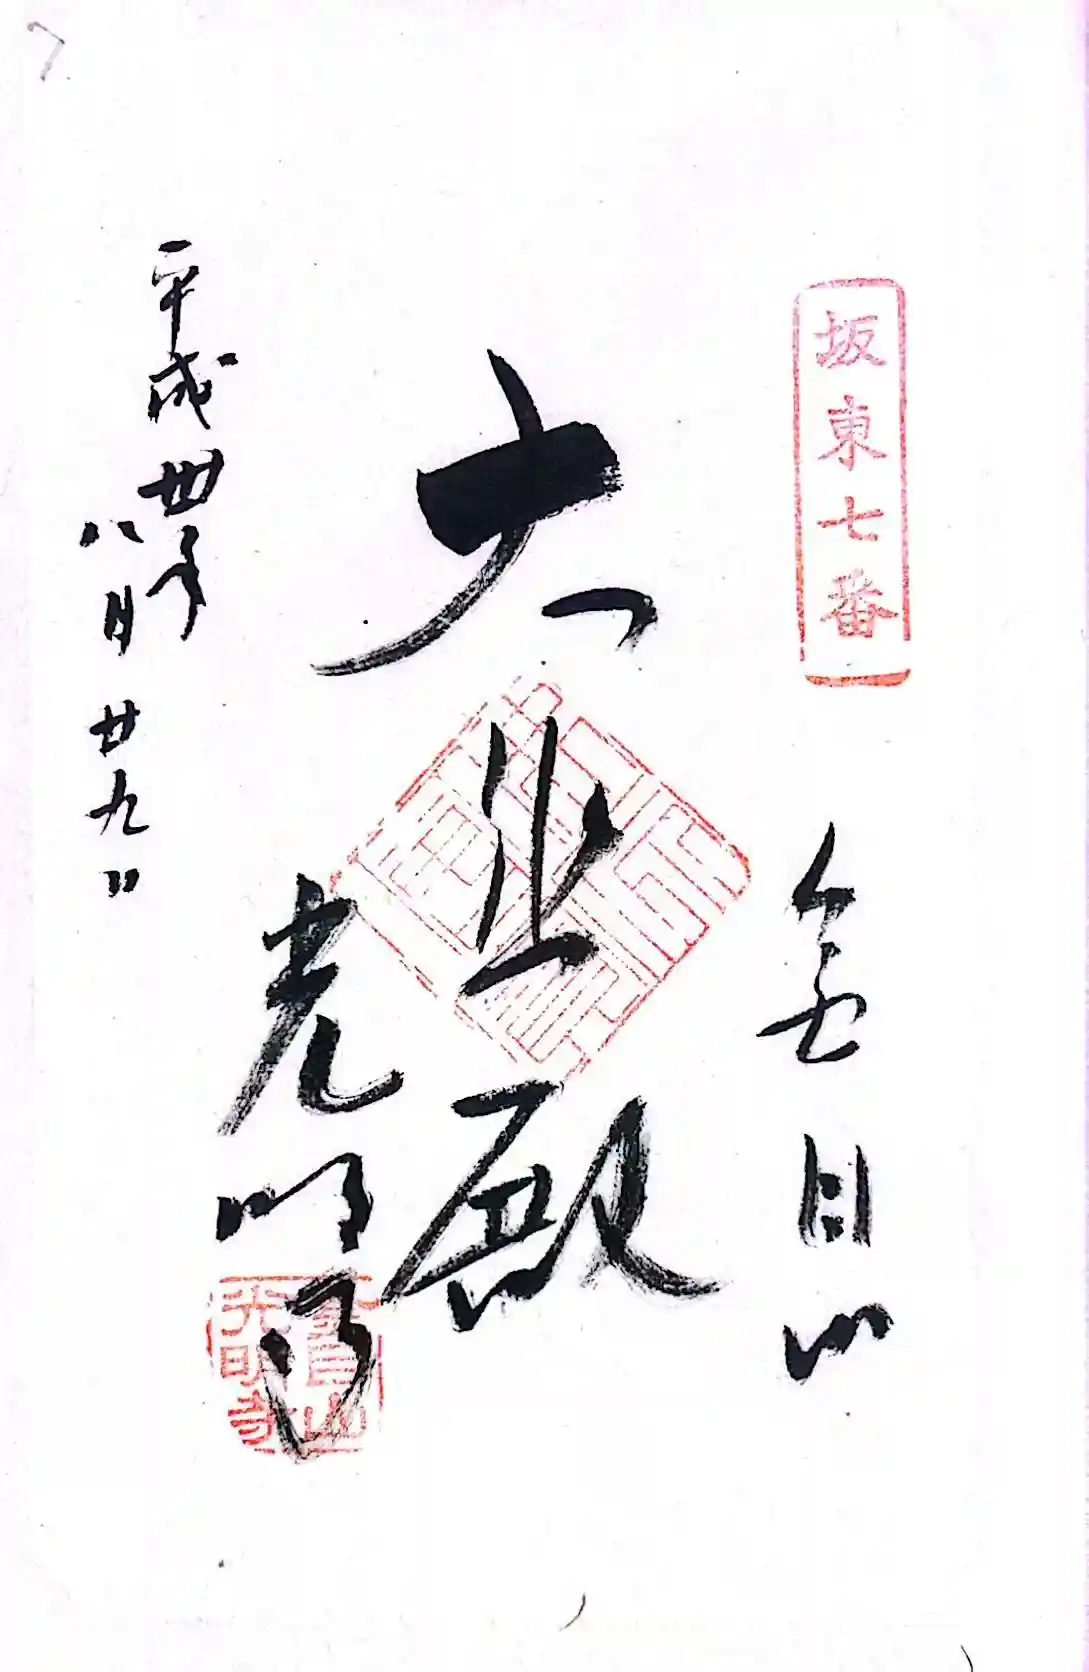 坂東七番
金目山
大悲殿
光明寺
金目山
光明寺
平成丗年
八月廿九日